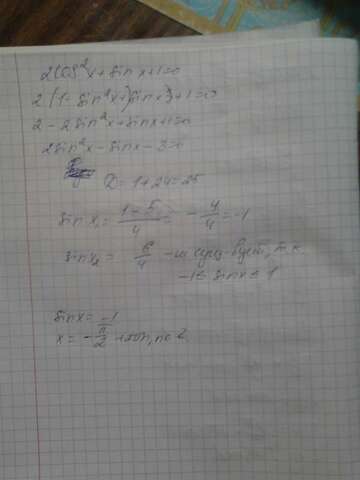 2cos²x+sinx+1=0
2(1-sin²x)+sinx+1=0
2-2sin²x+sinx+1=0
2sin²x-sinx-3=0
D=1+24=25
sinx₁= (1-5)/4 = -4/4=-1
sinx₂= 6/4 - не сущ-вует, т.к.
-1≤ sinx≤ 1
sinx=-1
x= -π/2 +2πn, n∈Z